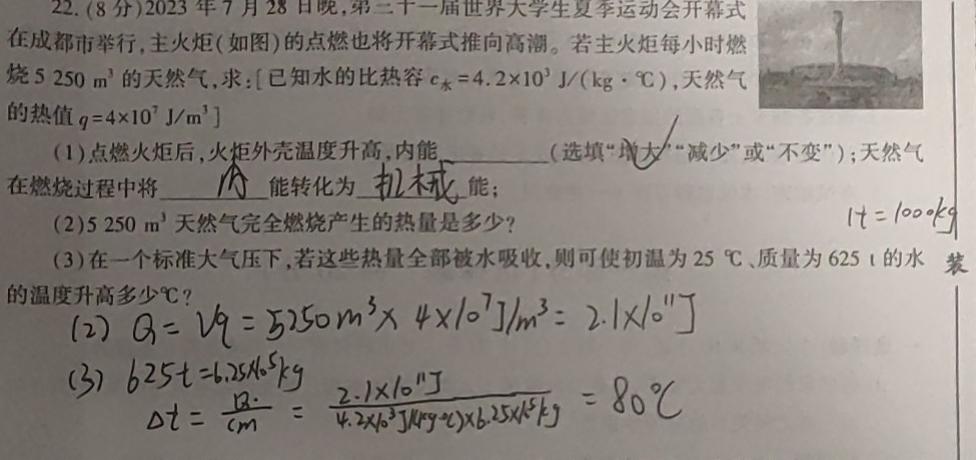 22.(8分)2023年7月28日晚,第三十一届世界大学生夏季运动会开幕式
在成都市举行,主火炬(如图)的点燃也将开幕式推向高潮。若主火炬每小时燃
烧5 250 m³的天然气,求:[已知水的比热容c水=4.2×10³ J/(kg·℃),天然气
的热值q=4×10⁷ J/m³]
(1)点燃火炬后,火炬外壳温度升高,内能________(选填“增大”“减少”或“不变”);天然气
在燃烧过程中将 内 能转化为 机械 能;
(2)5 250 m³天然气完全燃烧产生的热量是多少?
1t=1000kg
(3)在一个标准大气压下,若这些热量全部被水吸收,则可使初温为25 ℃、质量为625 t的水
装
的温度升高多少℃?
(2) Q=Vq=5250m³×4×10⁷J/m³=2.1×10¹¹J
(3) 625t=6.25×10⁵kg
Δt=Q/cm=2.1×10¹¹J/4.2×10³J/(kg·℃)×6.25×10⁵kg=80℃